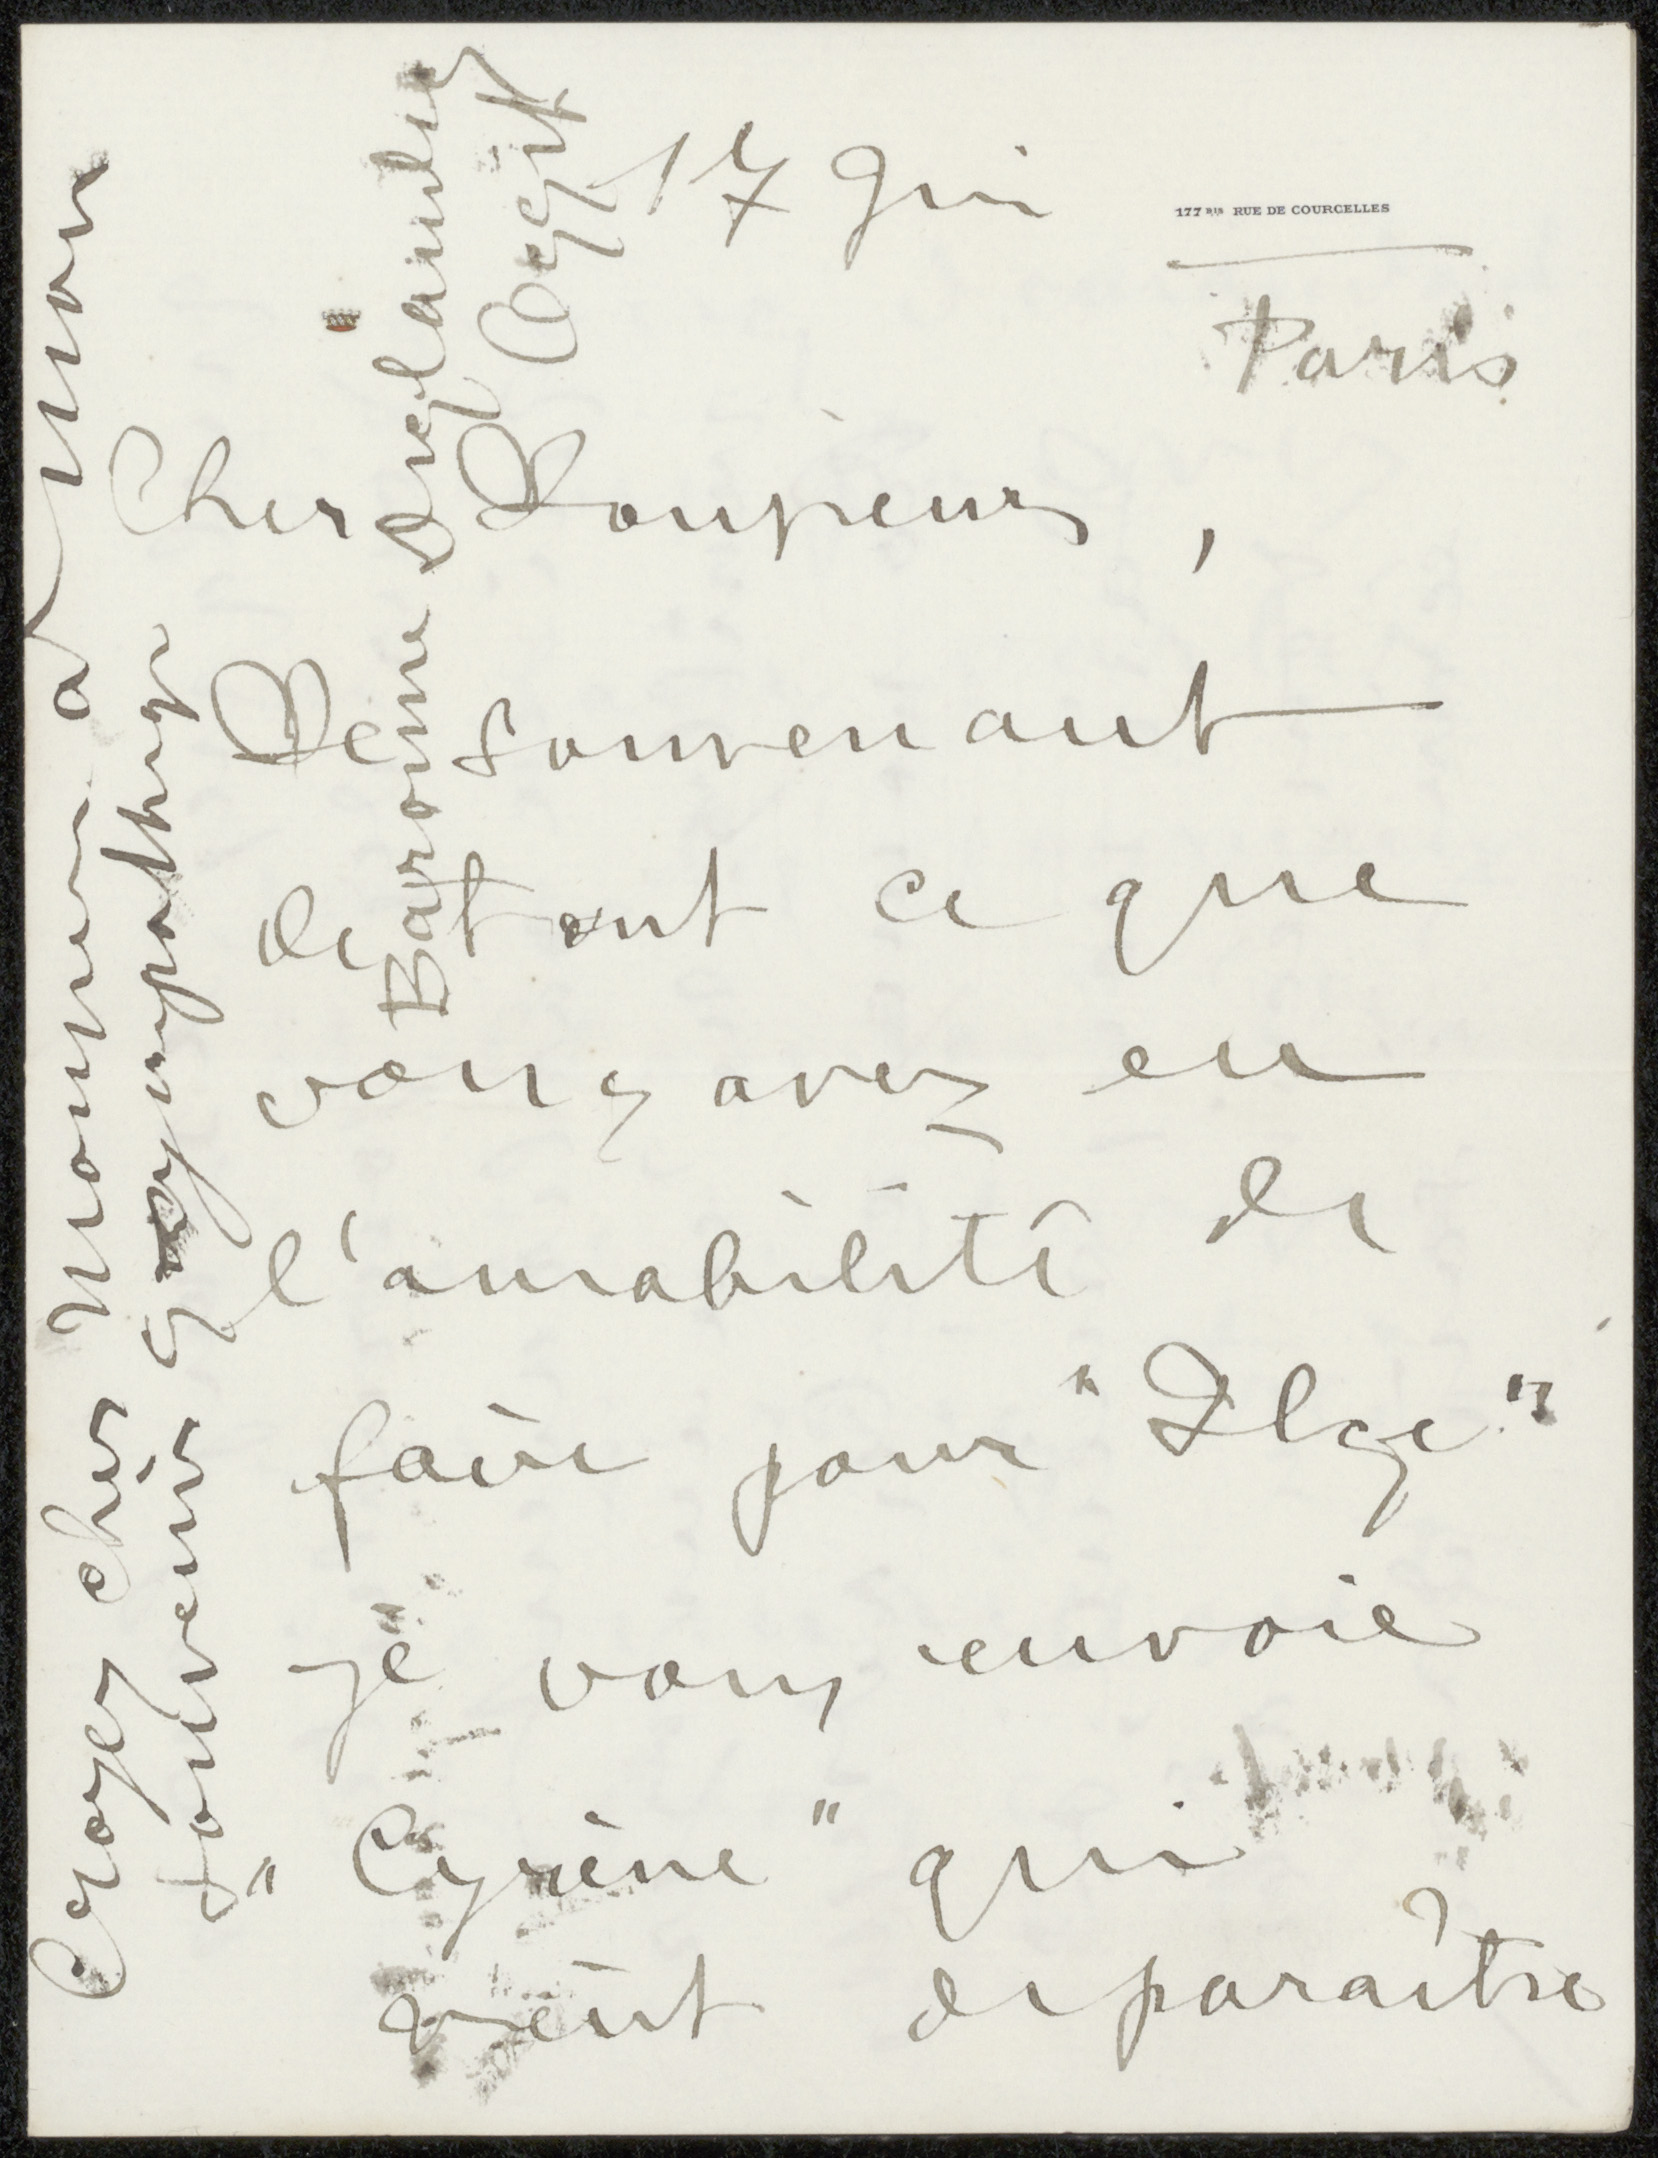 17 Juin
177 BIS RUE DE COURCELLES
Paris
Cher Monsieur,
Me souvenant
de tout ce que
vous avez eu
l'amabilité de
faire pour "Ilse"
je vous envoie
"Cyrène" qui
vient de paraître
Croyez cher Monsieur à mon
souvenir sympathique
Baronne